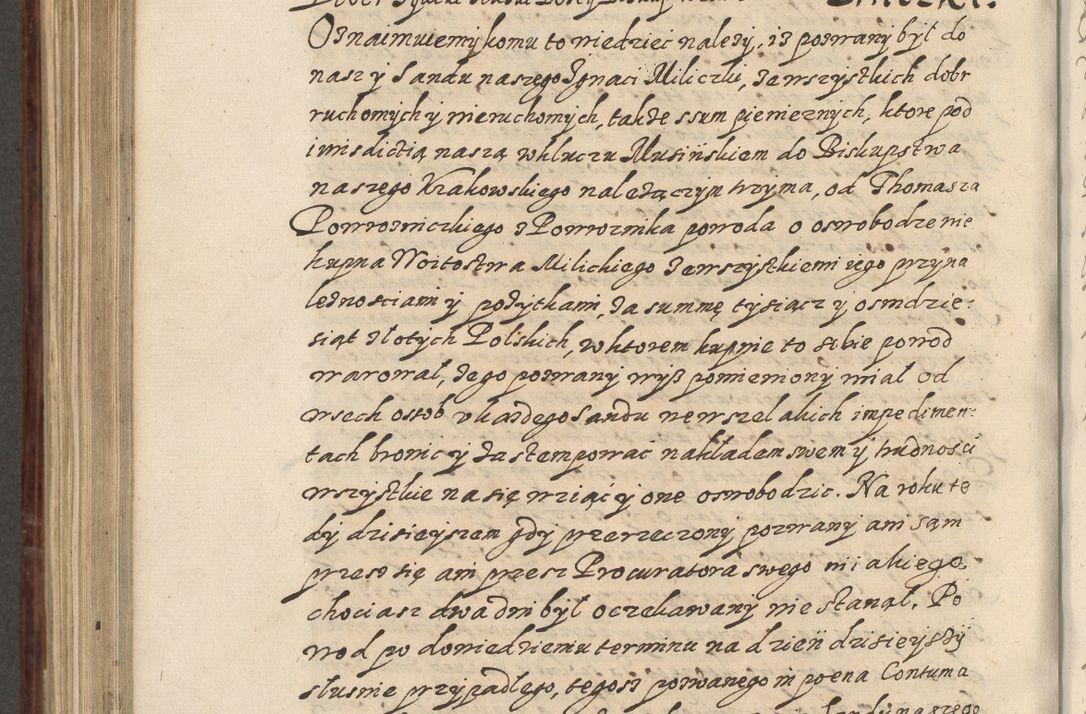 Oznaimuiemy komu to wiedziec nalezy, iz pozwany był do
nasz y Sandu naszego Ignaci Miliczki, zewszystkich dobr
ruchomych y nieruchomych, takze ssum pienieznych, ktore pod
iurisdictią naszą w kluczu Musińskiem do Biskupstwa
naszego Krakowskiego nalezączym trzyma, od Thomasza
Powrozniczkiego z Powroznika powoda o oswobodzenie
kupna Woitostwa Milickiego zewszystkiemi iego przyna
leznosciami y pozytkami, za summę tysiącz y osmdzie-
siąt złotych Polskich, w ktorem kupnie to sobie powod
warował, zego pozwany wyß pomieniony miał od
wsech osob v kazdego Sandu wewszelakich impedimen-
tach bronic y zastempowac nakładem swem y trudnosci
wszystkie na się wziąć y one oswobodzic. Na roku te
dy dzisieyszem gdy przerzeczony pozwany ani sąm
przesz się ani przesz Procuratora swego niiakiego,
chociasz dwa dni był oczekawany nie stanął. Po
wod po dowiedzieniu terminu na dzień dzisieyszy
slusnie przypadlego, tegosz pozwanego in poena Contuma